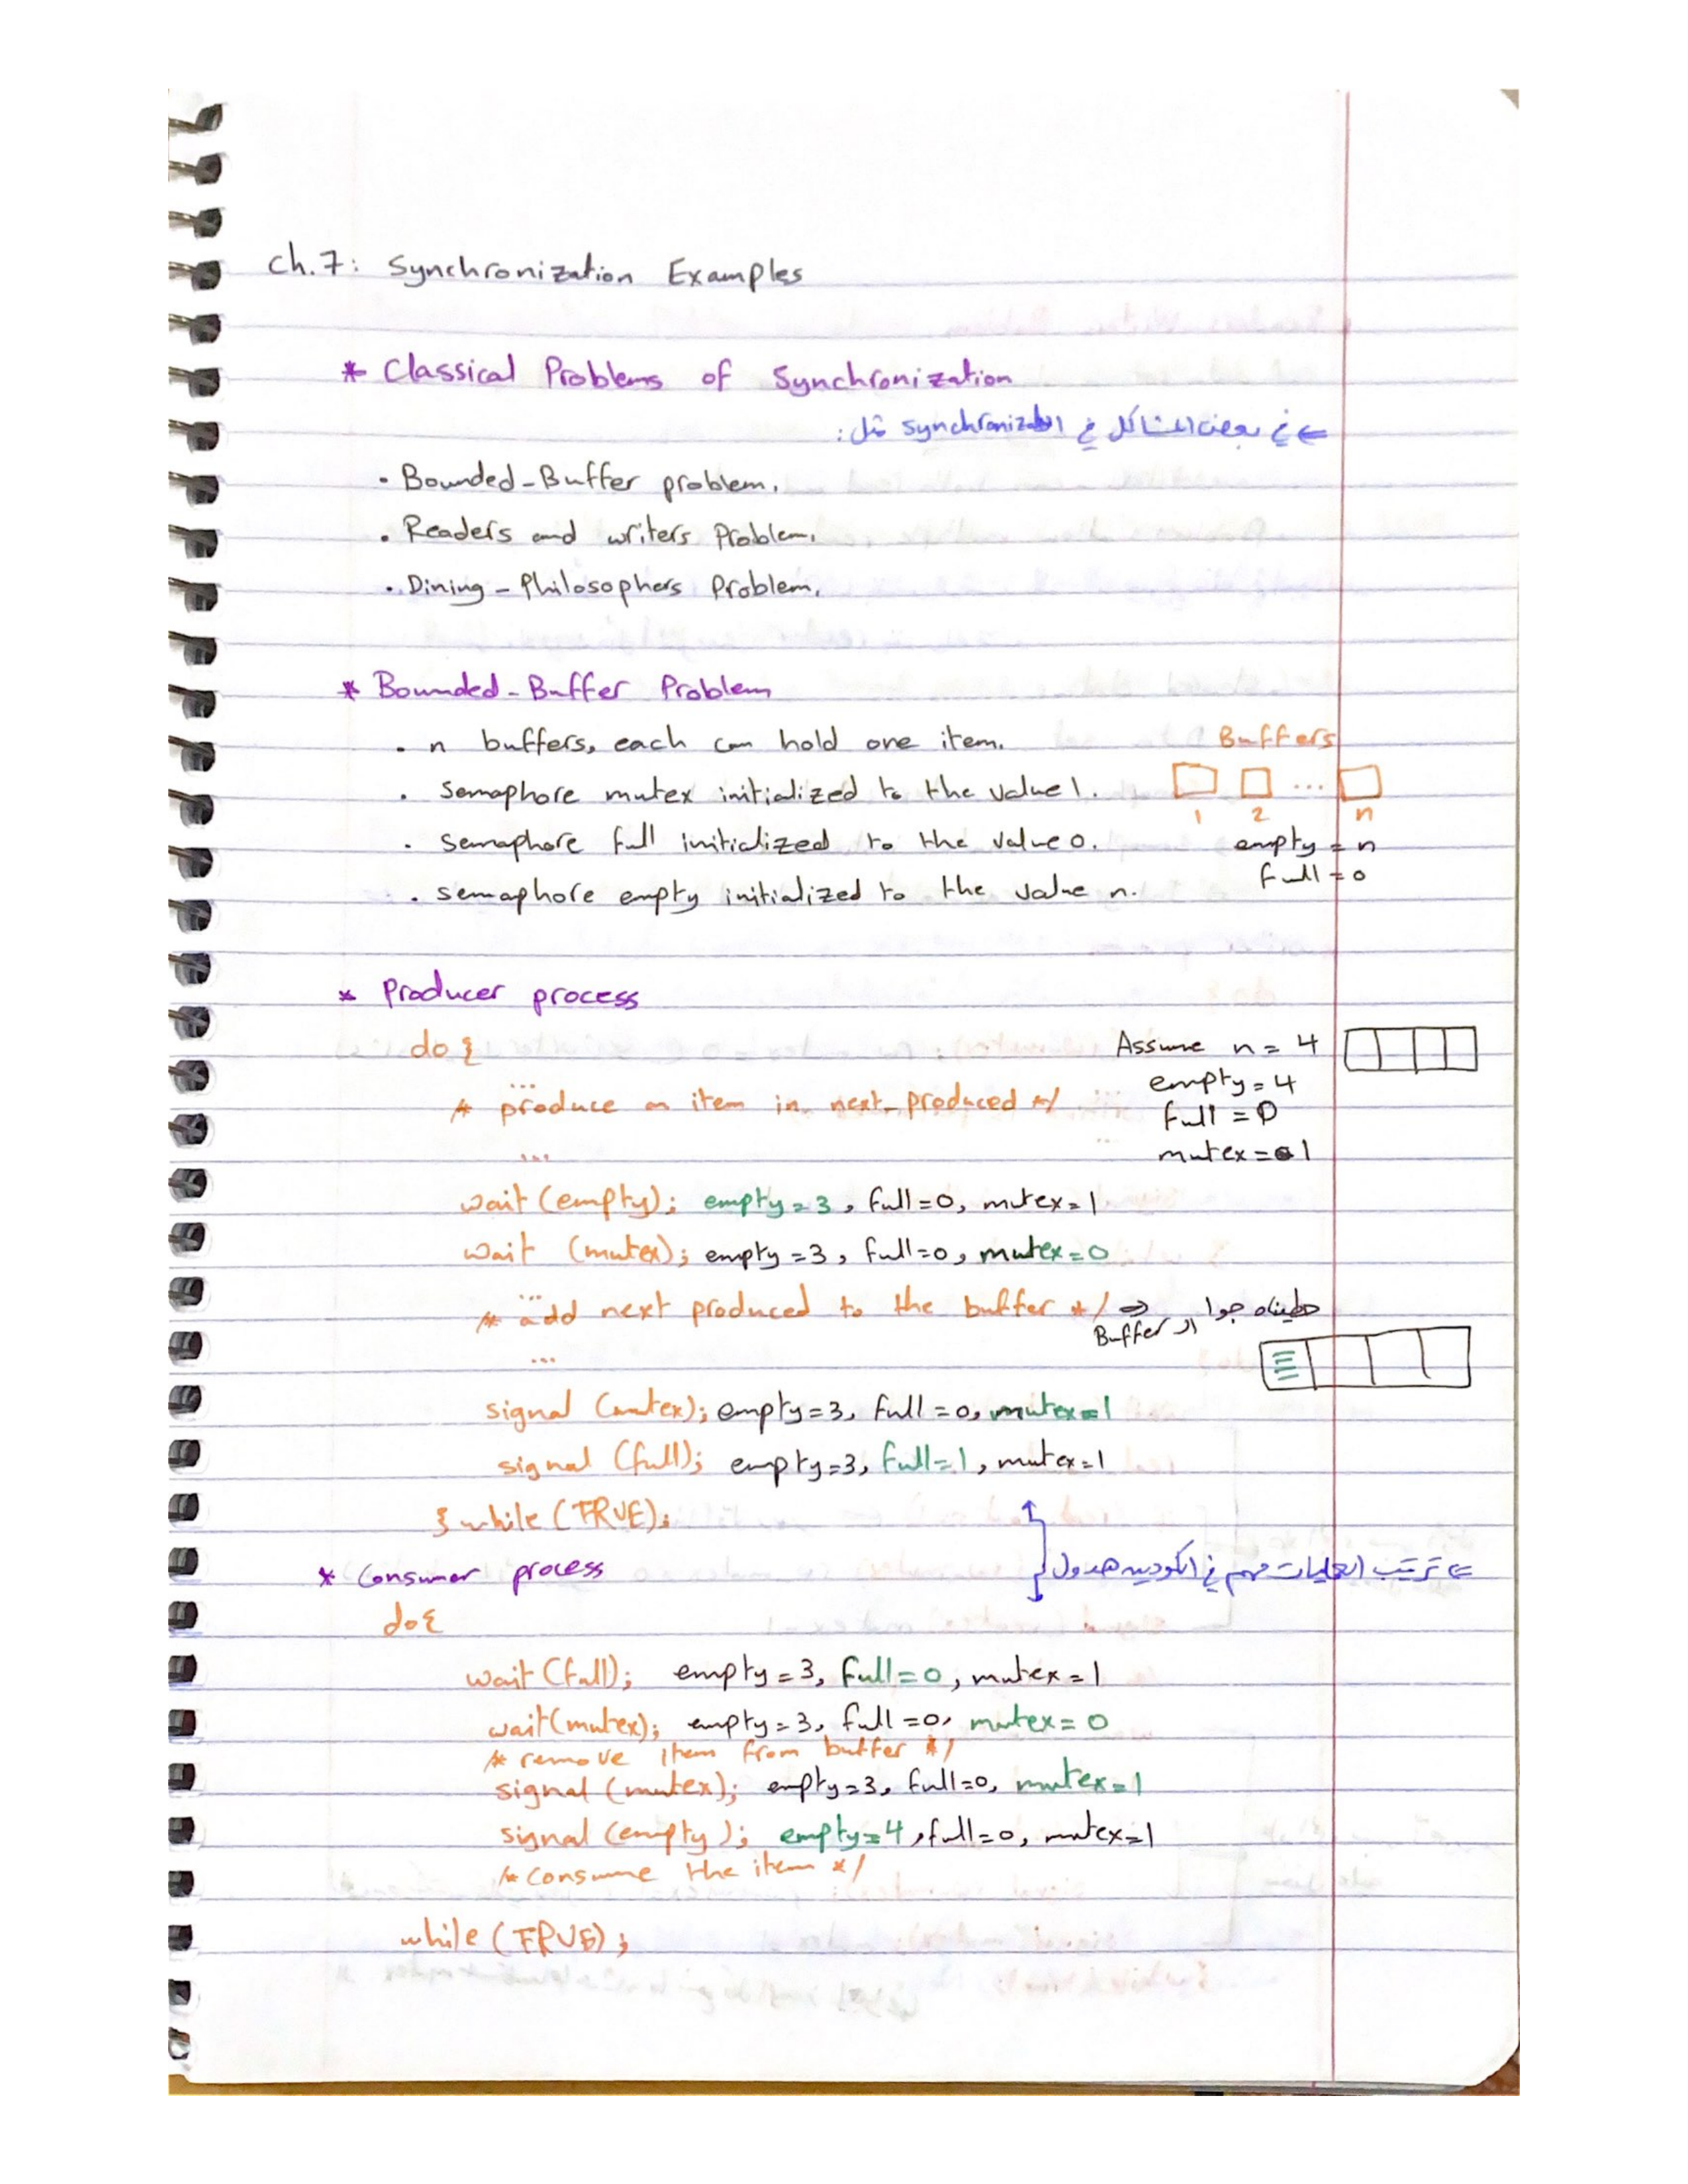 Ch.7: Synchronization Examples
* Classical Problems of Synchronization
⇐ في بعض المشاكل في ال synchronization مثل:
• Bounded-Buffer problem.
• Readers and writers Problem.
• Dining-Philosophers Problem.
* Bounded-Buffer Problem
• n buffers, each can hold one item.
Buffers
• semaphore mutex initialized to the value 1.
...
1 2 n
• semaphore full initialized to the value 0.
empty = n
full = 0
• semaphore empty initialized to the value n.
* Producer process
do {
Assume n = 4
...
empty = 4
/* produce an item in next-produced */
full = 0
...
mutex = 1
wait (empty); empty = 3, full = 0, mutex = 1
wait (mutex); empty = 3, full = 0, mutex = 0
...
/* add next produced to the buffer */ ⇒ حطيناه جوا ال Buffer
...
signal (mutex); empty = 3, full = 0, mutex = 1
signal (full); empty = 3, full = 1, mutex = 1
} while (TRUE);
⇐ ترتيب العمليات مهم في الكودين هدول
* Consumer process
do {
wait (full); empty = 3, full = 0, mutex = 1
wait (mutex); empty = 3, full = 0, mutex = 0
/* remove item from buffer */
signal (mutex); empty = 3, full = 0, mutex = 1
signal (empty); empty = 4, full = 0, mutex = 1
/* Consume the item */
while (TRUE);